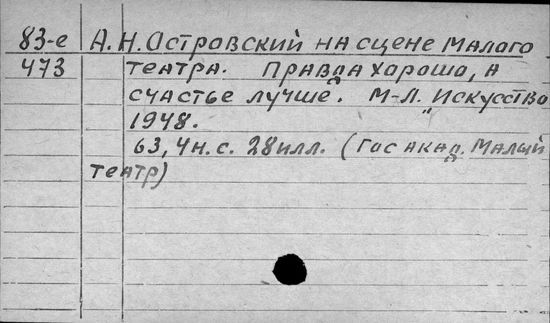 83-е А. Н. Островский на сцене Малого
473 театра. Правда хорошо, а
счастье лучше. М-Л. "Искусство"
1948.
63, 4н. с. 28илл. (Гос акад. Малый
театр)